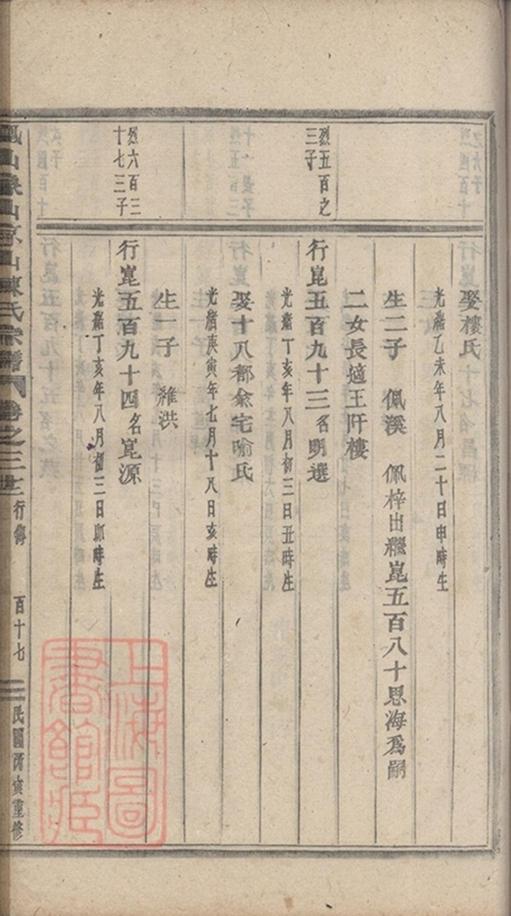 娶樓氏
光緒乙未年八月二十日申時生
生二子 佩溪 佩梓出繼崑五百八十思海爲嗣
二女長適王阡樓
烈五百之
三子
行崑五百九十三名明選
光緒丁亥年八月初三日丑時生
娶十八都兪宅喻氏
光緒庚寅年七月十八日亥時生
生一子 維洪
烈六百三
十七三子
行崑五百九十四名崑源
光緒丁亥年八月初三日卯時生
陳氏宗譜 卷之三
行傳
百十七
民國丙寅重修
上海圖
書館藏